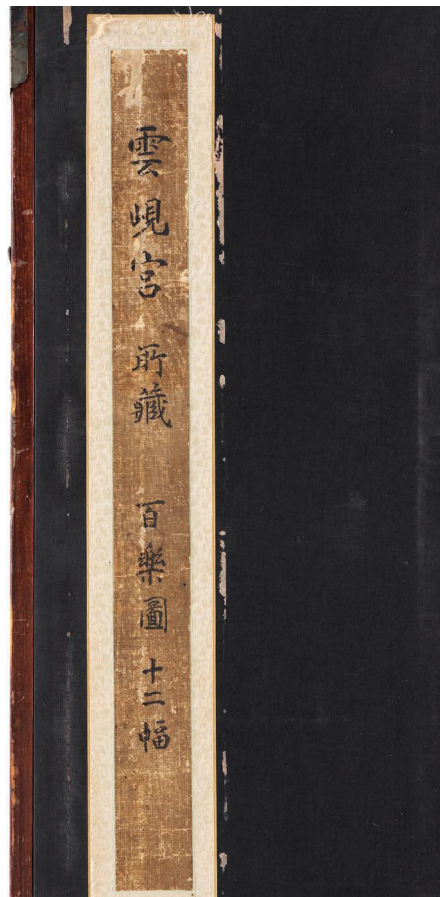 雲峴宮 所藏 百樂圖 十二幅